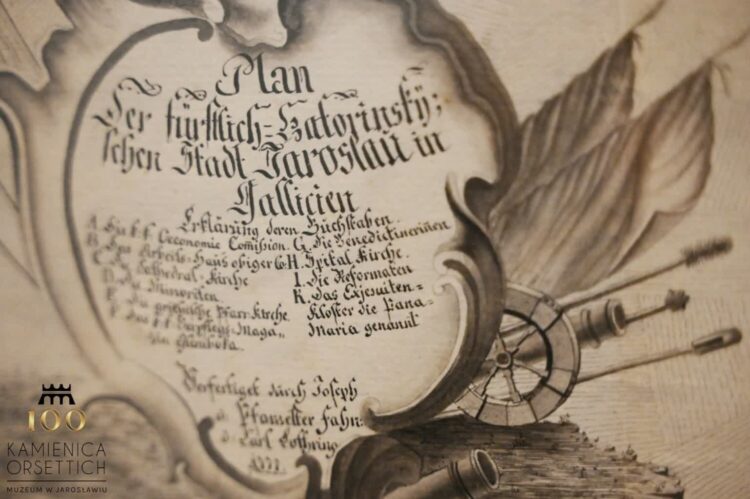 Plan
Der fürstlich=Zatorinskÿ=
schen Stadt Jaroslau in
Gallicien
Erklärung deren Buchstaben.
A. Die k.k. Oeconomie Comission. G. Die Benedictinerinen
B. Das Arbeits=Haus obiger Co: H. Spital Kirche.
C. Die Cathedral=Kirche I. Die Reformaten
D. Die Minoriten K. Das Exjesuiten=
E. Die griechische Pfarr=Kirche. Kloster die Pana=
F. Das k.k. Verpflegs=Maga= Maria genannt
Verfertiget durch Joseph
Fahn=
Carl Lothring
100
KAMIENICA
ORSETTICH
MUZEUM W JAROSŁAWIU